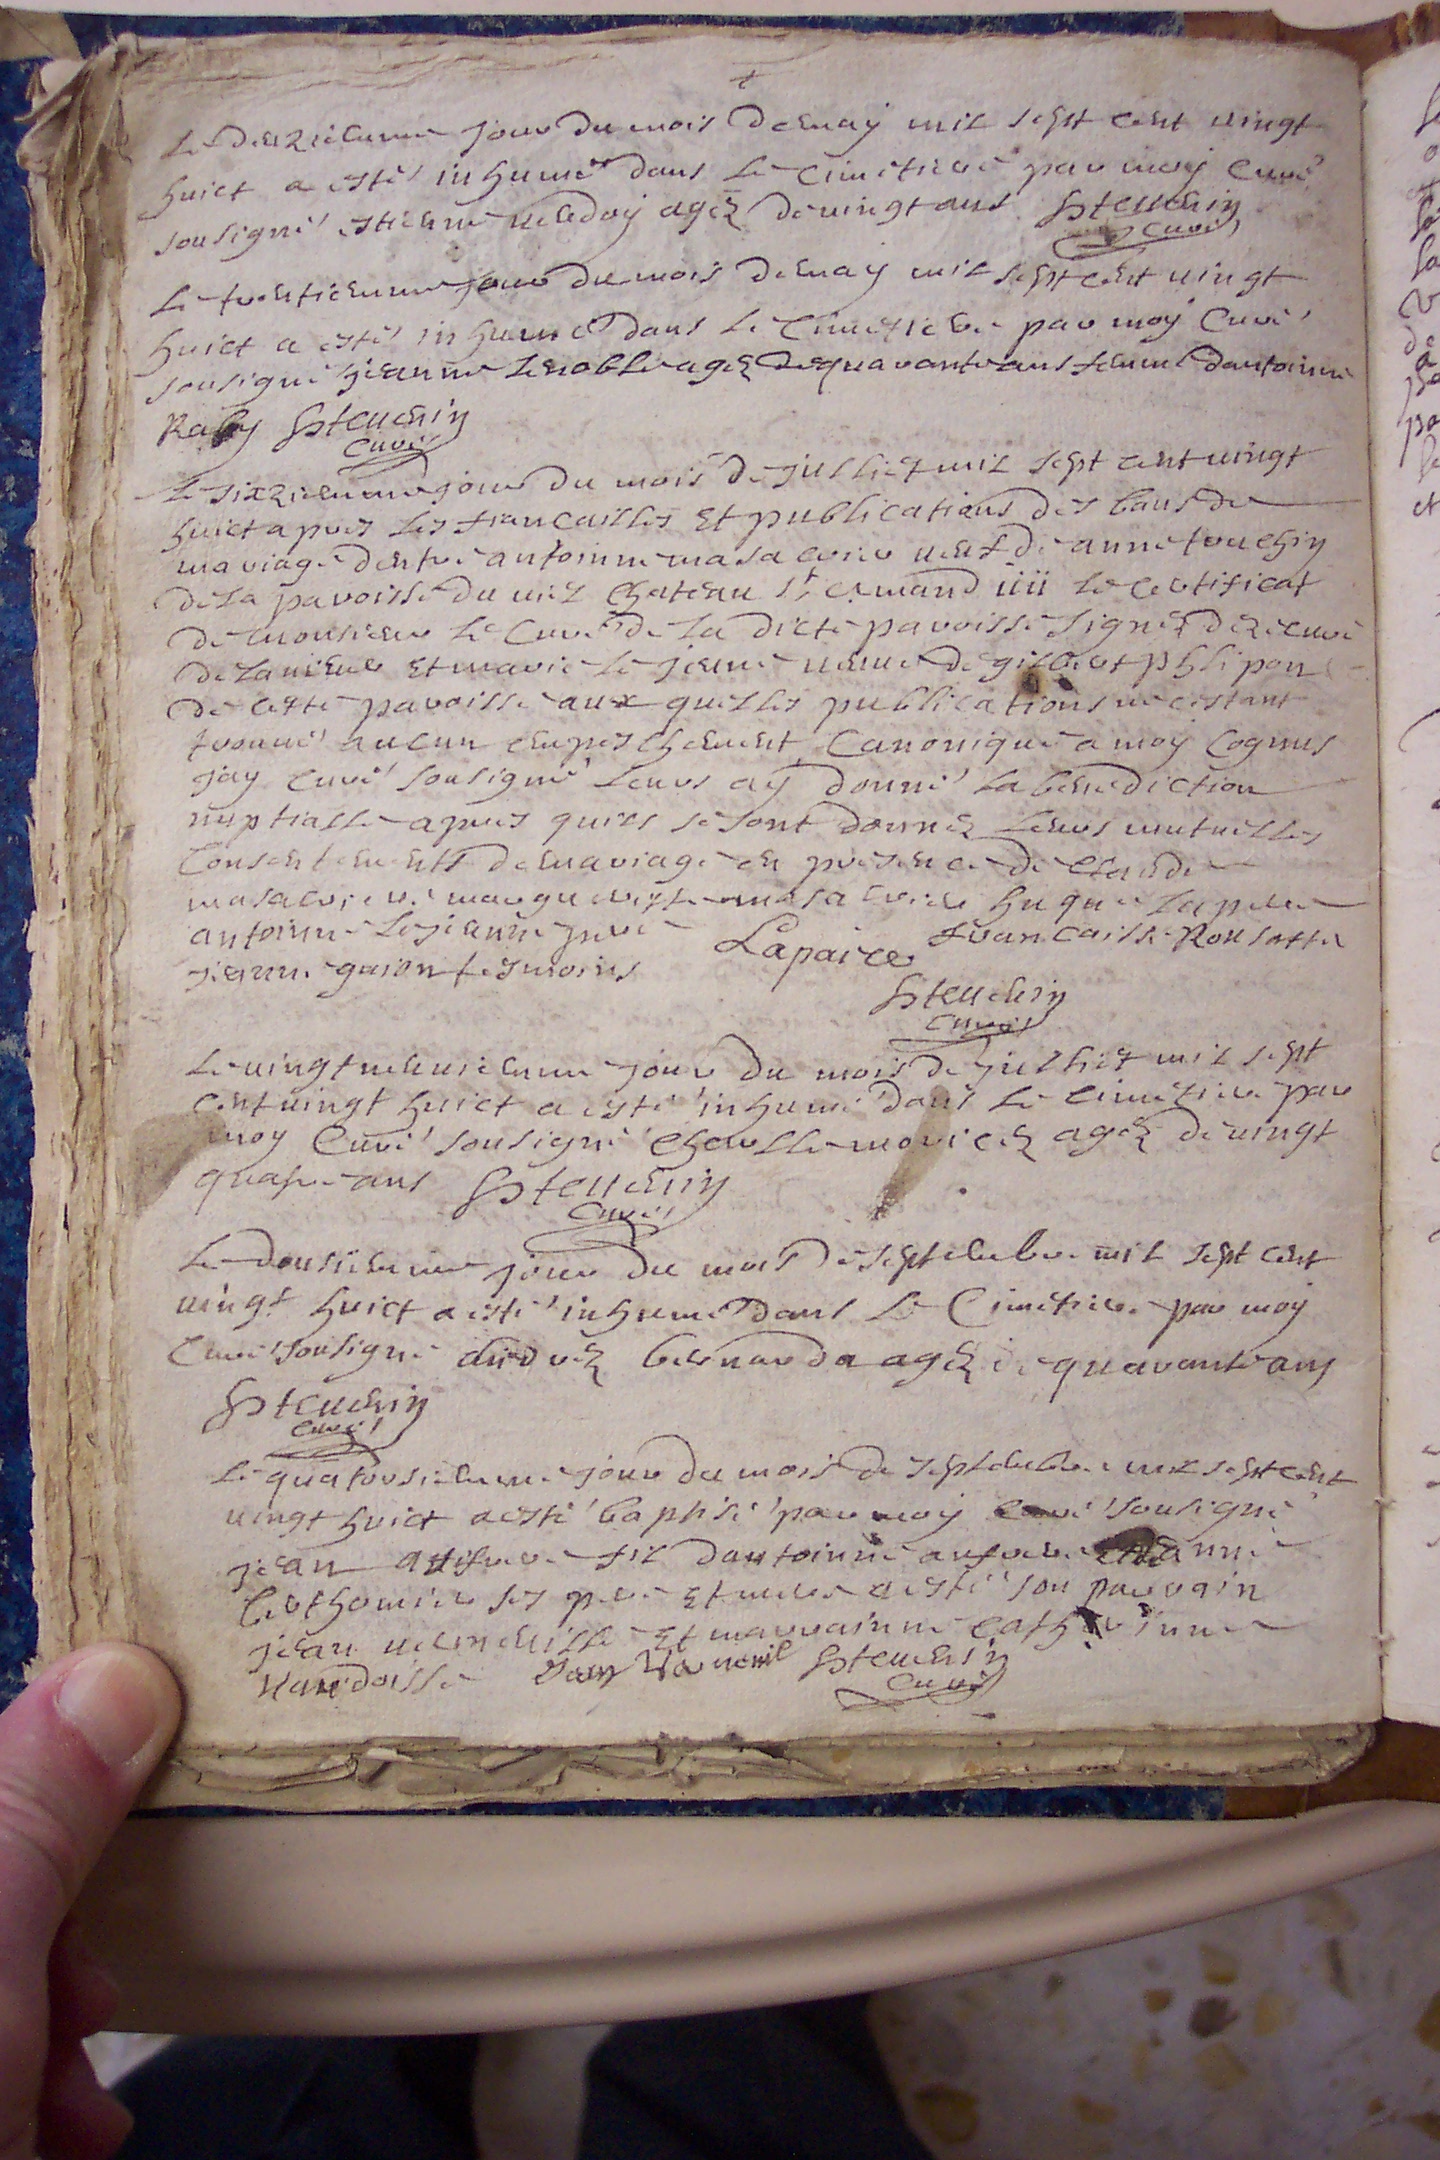 Le dixzieunme jour du mois de may mil sept cent vingt
huict a esté inhumé dans le cimetiere par moy curé
sousigné estienne agéz de vingt ans
curé
Le trentieunme jour du mois de may mil sept cent vingt
huict a esté inhumé dans le cimetiere par moy curé
sousigné jeanne Lenoble agéz de quarante ans femme dantoinne
Raby
curé
Le sixzieunme jour du mois de julliet mil sept cent vingt
huict apres les fiancailles et publications des bans de
mariage dentre antoinne masacrier veuf de anne touchin
de la paroisse du viel chateau st amand vü le certificat
de monsieur le curé de la dicte paroisse signéz curé
et marie le jeune veuve de gilbert phlipon
de cette paroisse aux quelles publications ne cestant
trouué aucun empeschement canonique a moy cognus
jay curé sousigné leurs ay donné la benediction
nuptialle apres quils se sont donnéz leurs mutuelles
consentements de mariage en presence de claude
masacrier margueritte masacrier hugue lapere
antoinne lejeunne francaisse Rousette
jeanne guion tesmoins Lapaire
curé
Le vingt neuvieunme jour du mois de julliet mil sept
cent vingt huict a esté inhumé dans le cimetiere par
moy curé sousigné charlle moricéz agéz de vingt
quatre ans
curé
Le dousieunme jour du mois de septembre mil sept cent
vingt huict a esté inhumé dans le cimetiere par moy
curé sousigné andréz bernarda agéz de quarante ans
curé
Le quatousieunme jour du mois de septembre mil sept cent
vingt huict a esté baptisé par moy curé sousigné
jean fil dantoinne anne
berthomier ses pere et mere a esté son parrain
jean et marrainne catherinne
curé